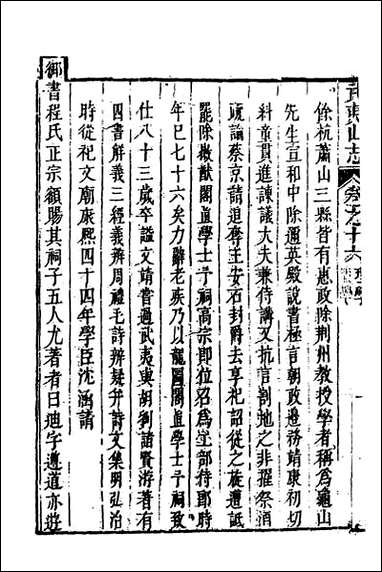 武夷山志 卷之十六
餘杭蕭山三縣皆有惠政除荆州教授學者稱爲龜山
先生宣和中除邇英殿說書極言朝政邊務靖康初切
科童貫進諫議大夫兼侍講又抗言割地之非擢祭酒
疏論蔡京請追奪王安石封爵去享祀詔從之旋遭詆
罷除徽猷閣直學士予祠高宗即位召爲工部侍郎時
年已七十六矣力辭老疾乃以龍圖閣直學士予祠致
仕八十三歲卒諡文靖嘗過武夷與胡劉諸賢游著有
四書解義三經義辨周禮毛詩辨疑幷詩文集明弘治
時從祀文廟康熙四十四年學臣沈涵請
御書程氏正宗額賜其祠子五人尤著者曰迪字遵道亦遊